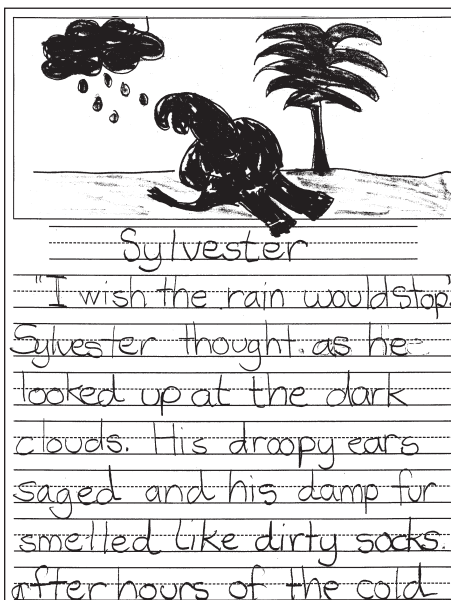 Sylvester
"I wish the rain would stop"
Sylvester thought as he
looked up at the dark
clouds. His droopy ears
saged and his damp fur
smelled like dirty socks.
after hours of the cold